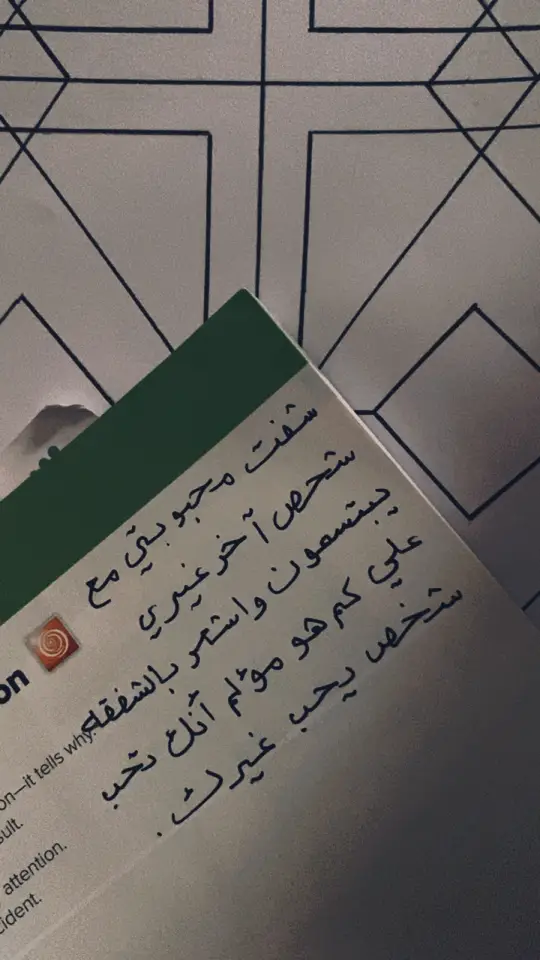 شفت محبوبتي مع
شخص آخر غيري
يبتسمون واشعر بالشفقه
علي كم هو مؤلم آنك تحب
شخص يحب غيرك.
on
on—it tells why
sult.
attention.
cident.